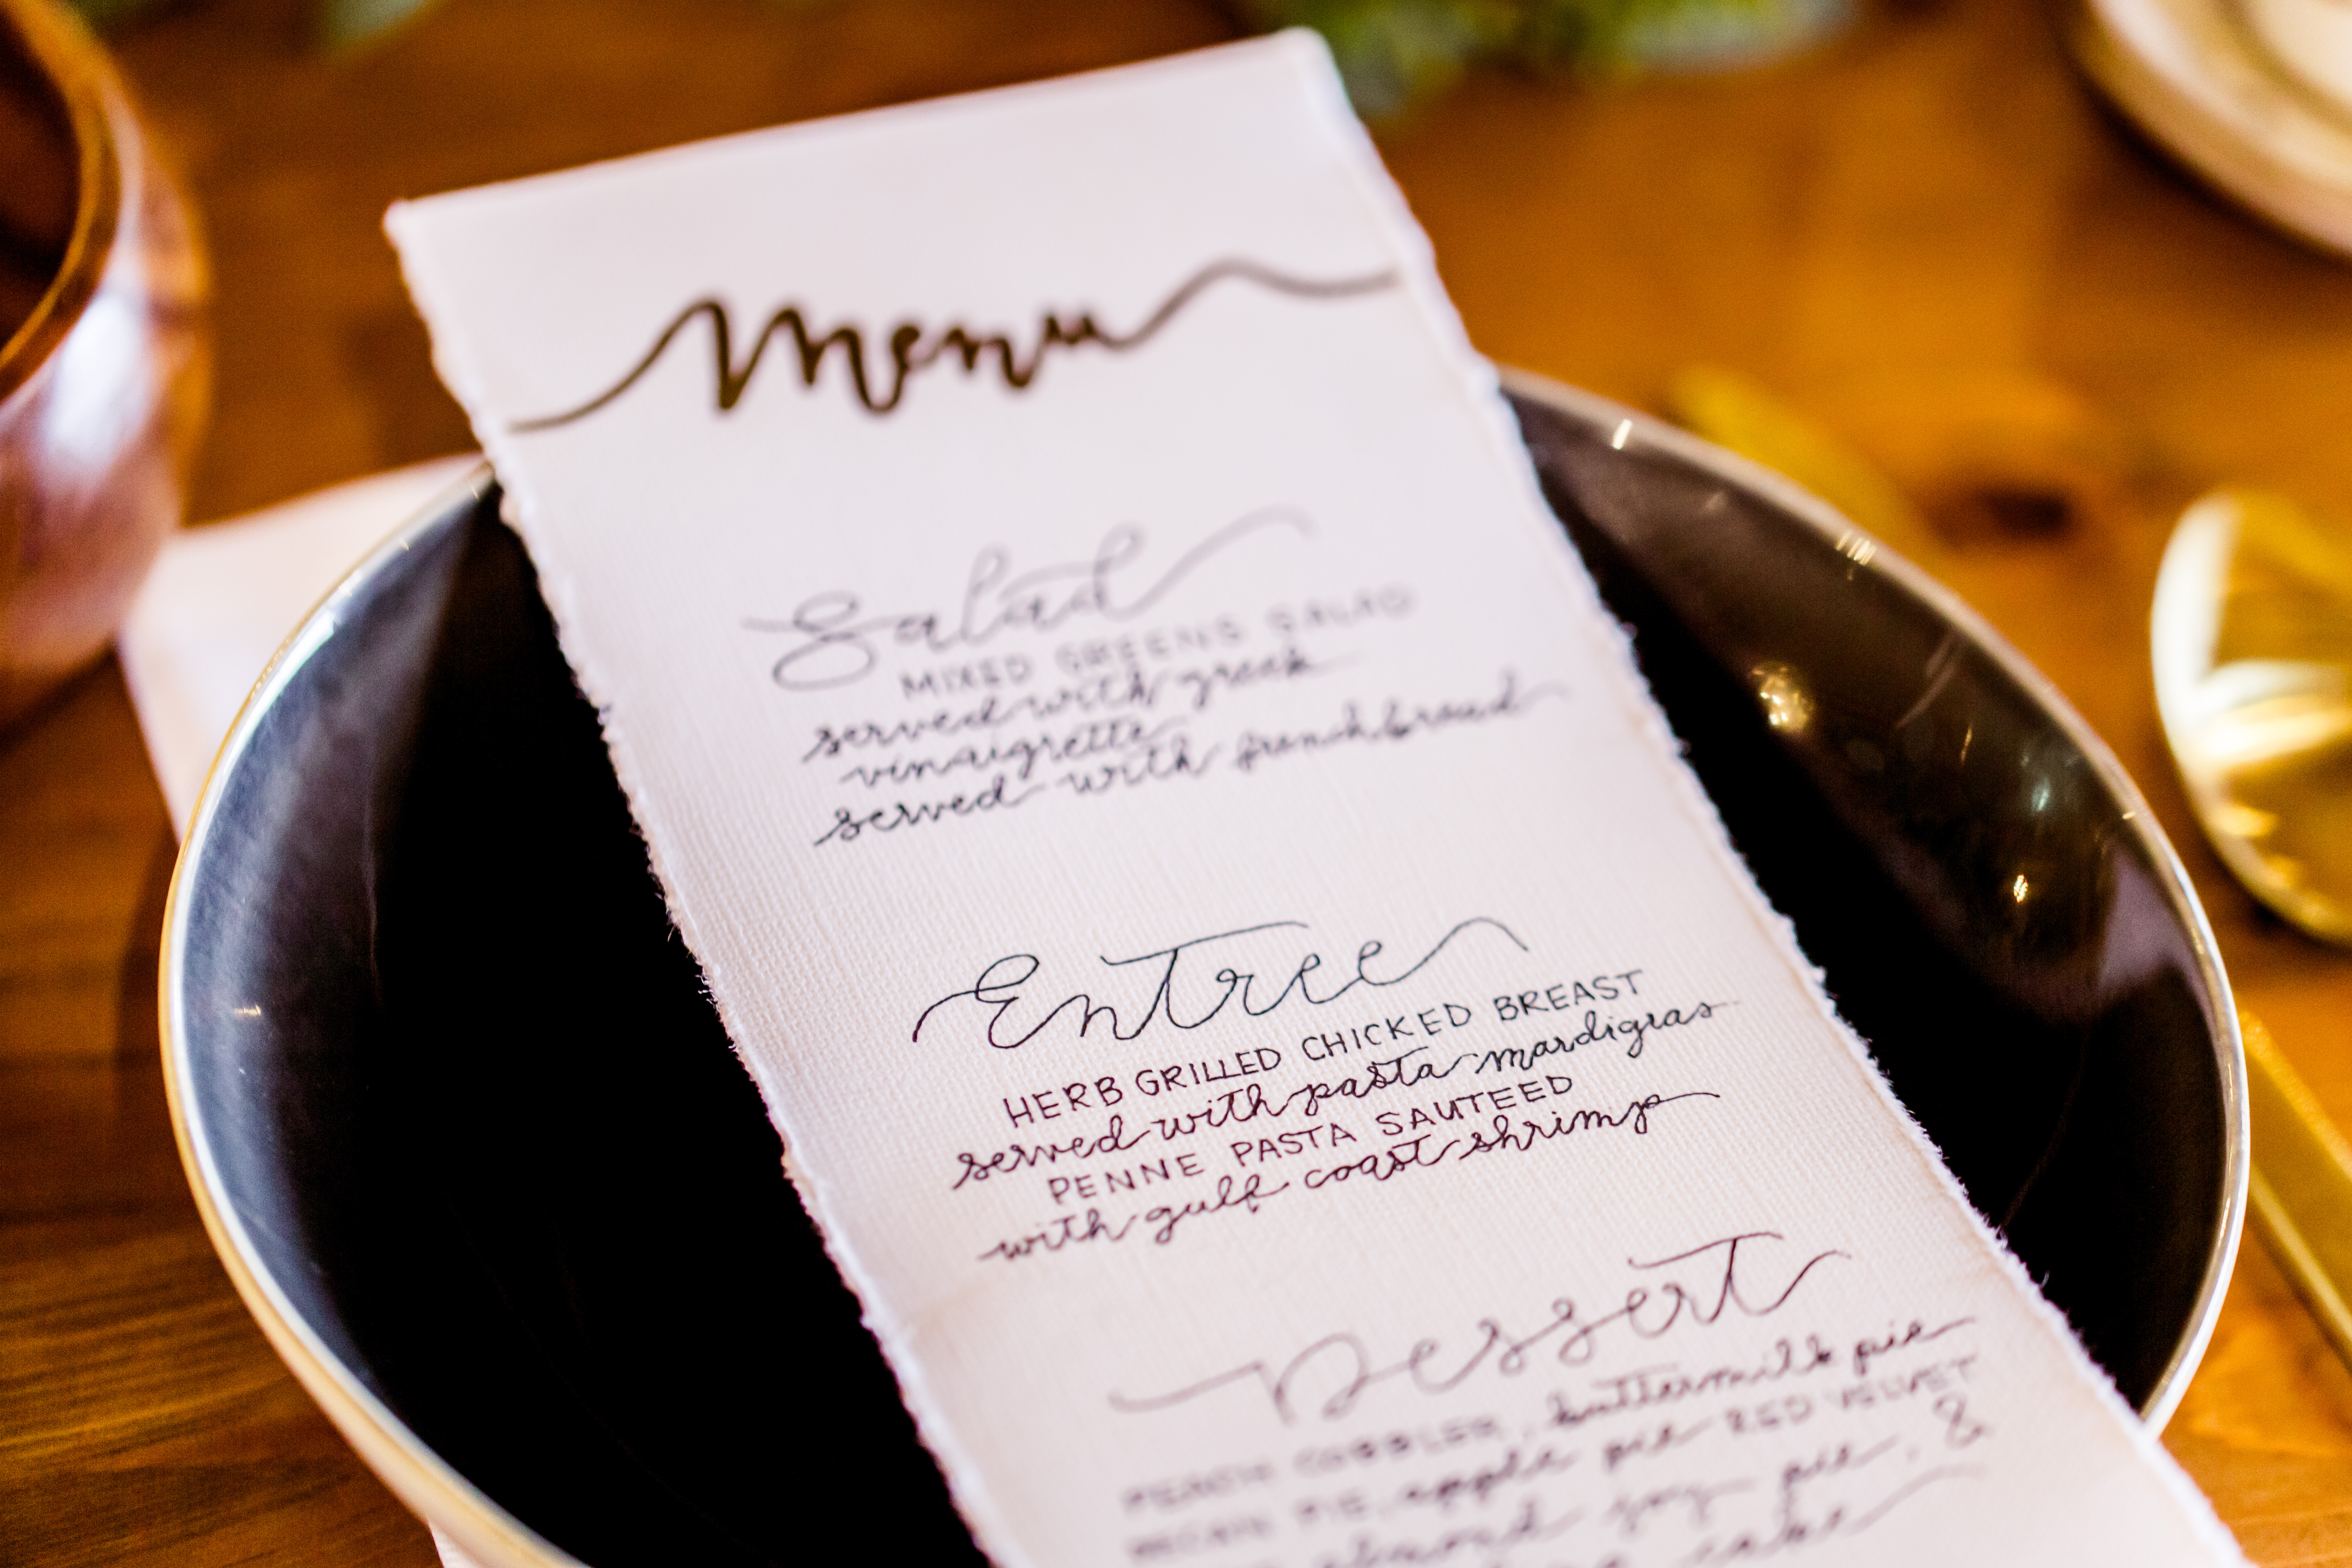 Menu
Salad
MIXED GREENS SALAD
served with greek
vinaigrette
served with french bread
Entree
HERB GRILLED CHICKED BREAST
served with pasta mardigras
PENNE PASTA SAUTEED
with gulf coast shrimp
Dessert
PEACH COBBLER, buttermilk pie
PECAN PIE, apple pie RED VELVET
almond joy pie, &
cake